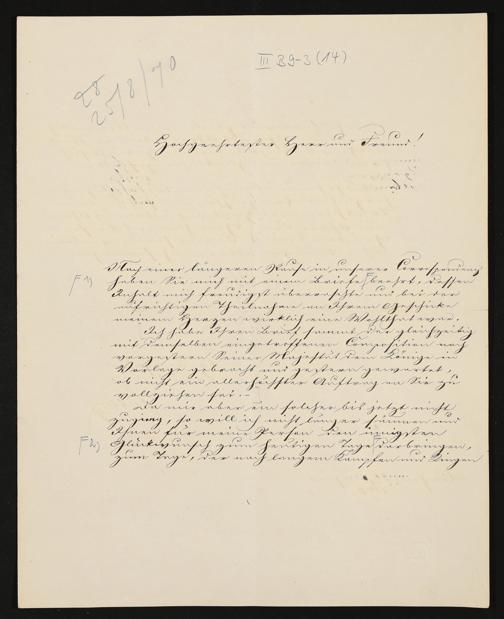 III B9-3 (14)
28
25/8/70
Hochgeehrtester Herr und Freund!
Nach einer längeren Pause in unserer Correspondenz
F 1) haben Sie mich mit einem Briefe beehrt, dessen
Inhalt mich freudigst überraschte und bei der
aufrichtigen Theilnahme an Ihrem Geschicke
meinem Herzen wirklich eine Wohlthat war.
Ich habe Ihren Brief sammt der gleichzeitig
mit demselben eingetroffenen Composition noch
vorgestern Seiner Majestät dem Könige in
Vorlage gebracht und gestern gewartet,
ob nicht ein allerhöchster Auftrag an Sie zu
vollziehen sei.
Da mir aber ein solcher bis jetzt nicht
zuging, so will ich nicht länger säumen und
Ihnen für meine Person den innigsten
F 2) Glückwunsch zum heutigen Tage darbringen,
zum Tage, der nach langem Kämpfen und Ringen